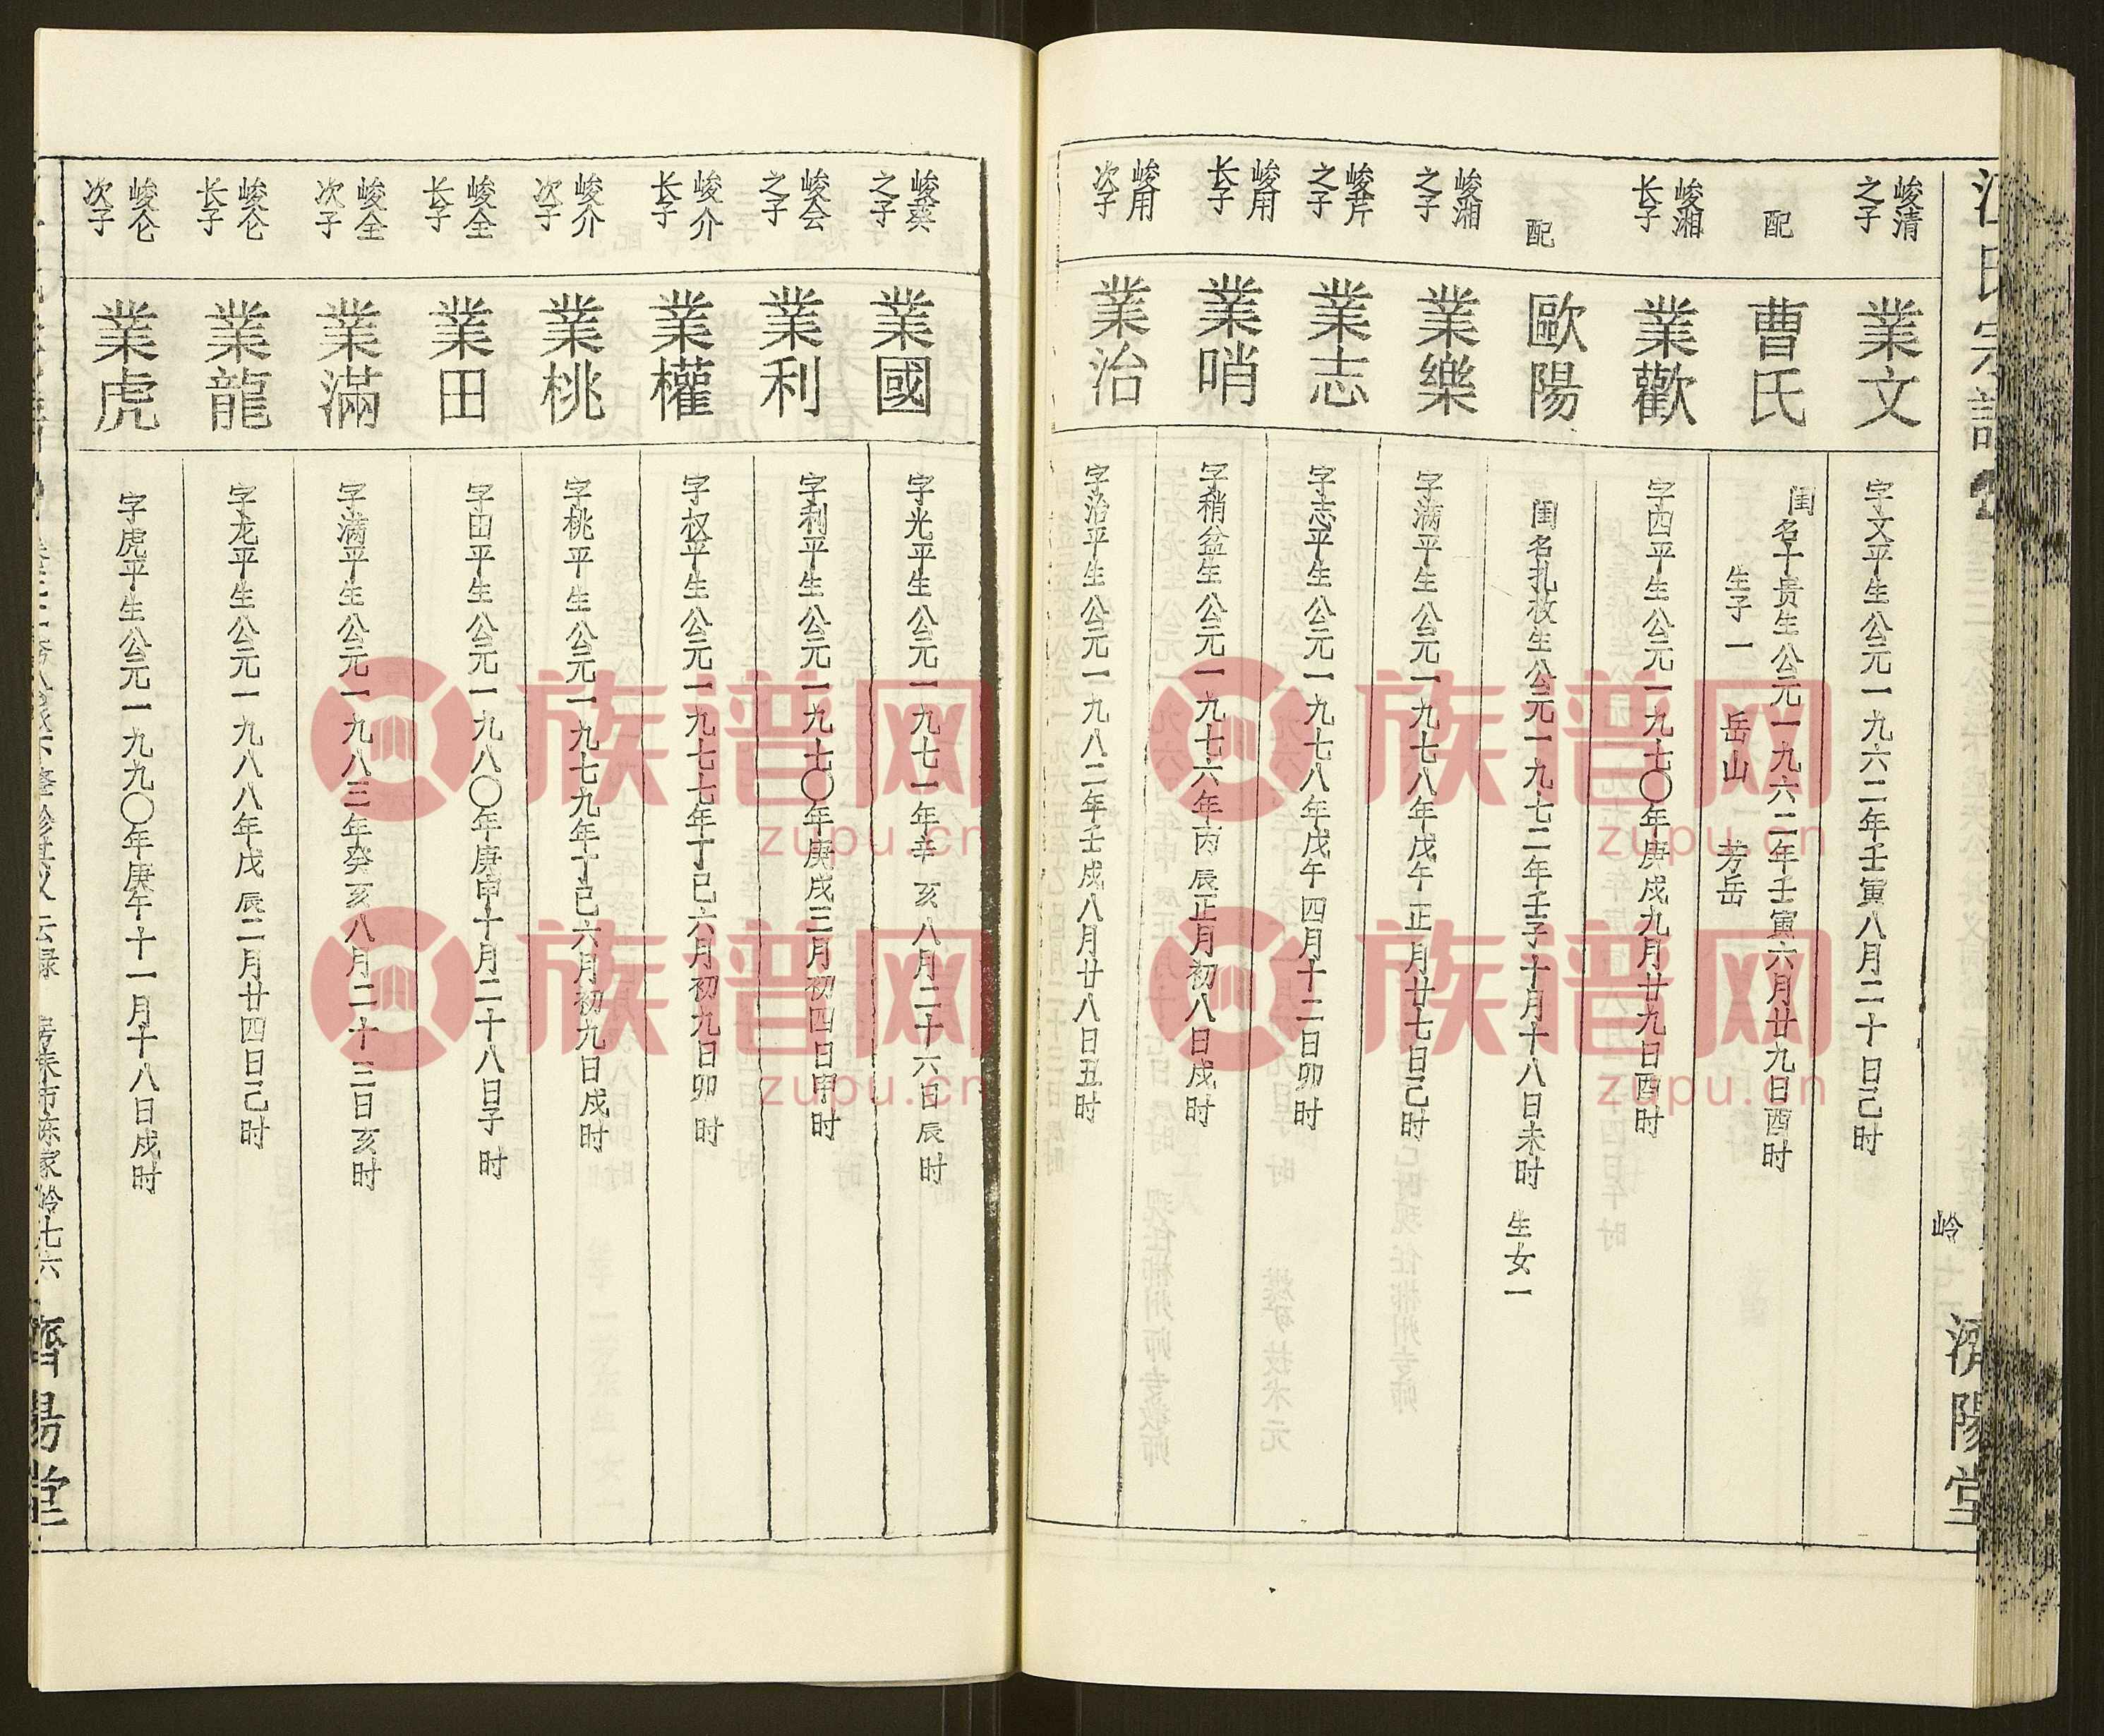 峻清
之子
業文
字文平生公元一九六二年壬寅八月二十日己时
配
曹氏
闺名十贵生公元一九六二年壬寅六月廿九日酉时
生子一 岳山 芳岳
峻湘
长子
業歡
字四平生公元一九七〇年庚戍九月廿九日酉时
配
歐陽
闺名扎枚生公元一九七二年壬子十月十八日未时 生女一
峻湘
之子
業樂
字满平生公元一九七八年戊午正月廿七日己时
峻芹
之子
業志
字志平生公元一九七八年戊午四月十二日卯时
峻用
长子
業哨
字稍盆生公元一九七六年丙辰正月初八日戍时
峻用
次子
業治
字治平生公元一九八二年壬戍八月廿八日丑时
岭
濟陽堂
峻葵
之子
業國
字光平生公元一九七一年辛亥八月二十六日辰时
峻会
之子
業利
字利平生公元一九七〇年庚戍三月初四日申时
峻介
长子
業權
字权平生公元一九七七年丁已六月初九日卯时
峻介
次子
業桃
字桃平生公元一九七九年丁己六月初九日戍时
峻全
长子
業田
字田平生公元一九八〇年庚申十月二十八日子时
峻全
次子
業滿
字满平生公元一九八三年癸亥八月二十三日亥时
峻仑
长子
業龍
字龙平生公元一九八八年戊辰二月廿四日己时
峻仑
次子
業虎
字虎平生公元一九九〇年庚午十一月十八日戍时
七六
濟陽堂
族谱网
zupu.cn
族谱网
zupu.cn
族谱网
zupu.cn
族谱网
zupu.cn